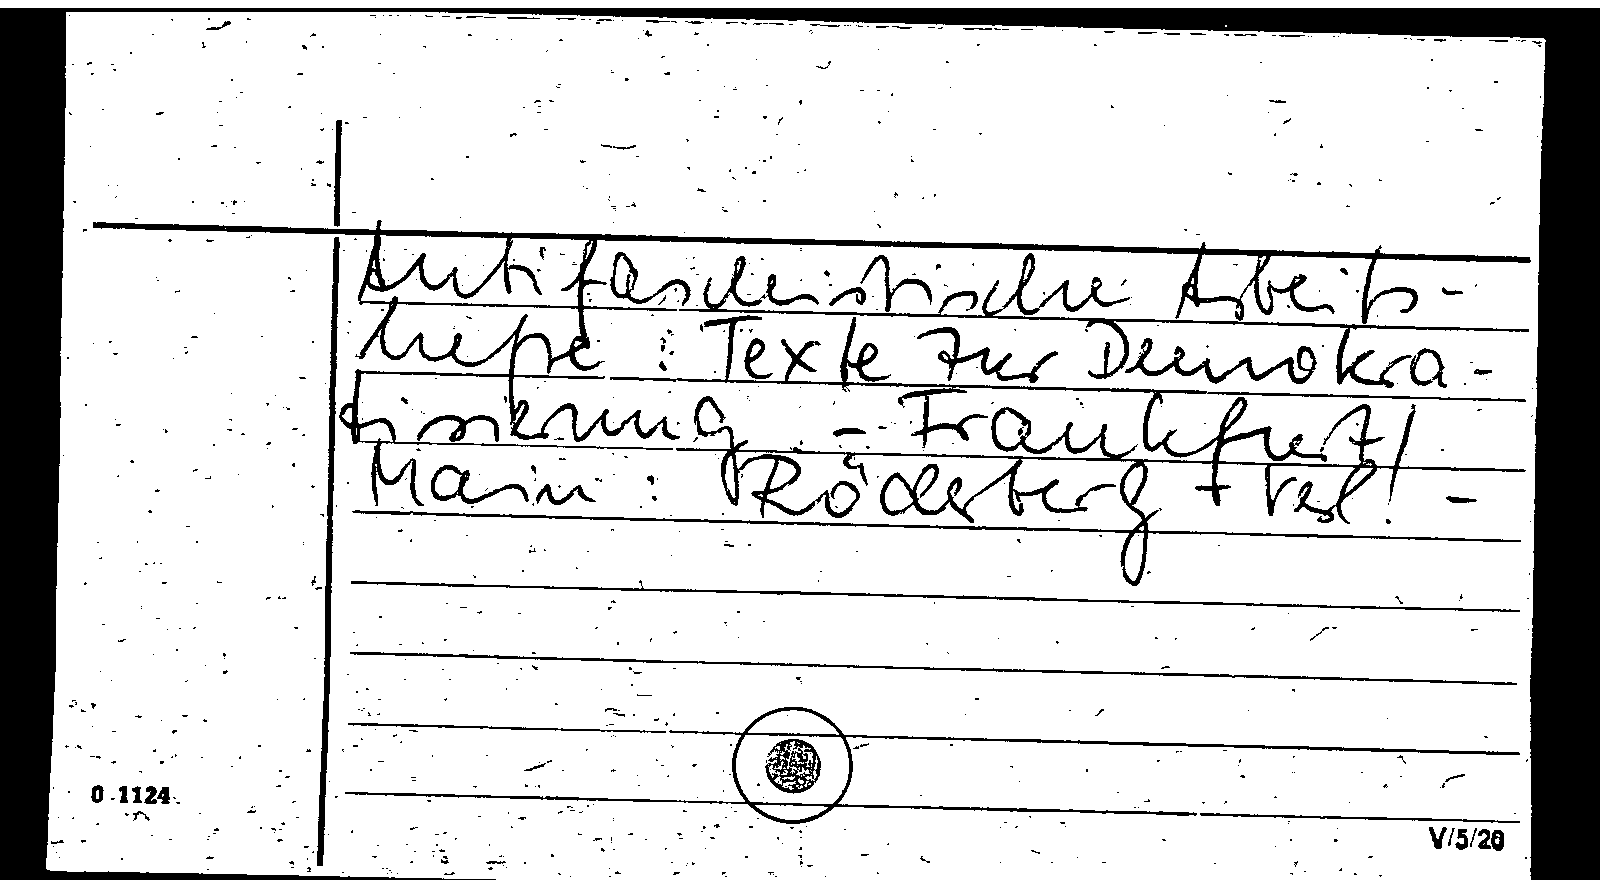 Antifaschistische Arbeits-
hefte : Texte zur Demokra-
tisierung. - Frankfurt/
Main : Röderberg-Verl. -
0 1124
V/5/20